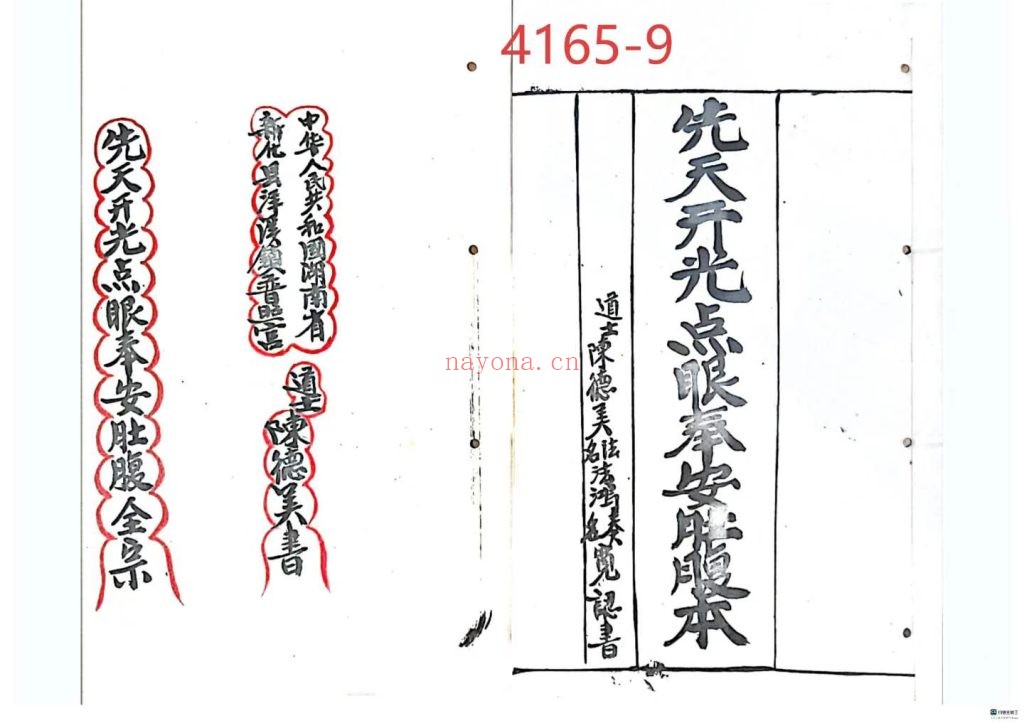 4165-9
先天开光点眼奉安肚腹本
道士陳德美法名法鴻奏名覽認書
中华人民共和國湖南省
新化县洋溪鎮普照宫
道士陳德美書
先天开光点眼奉安肚腹全宗
nayona.cn